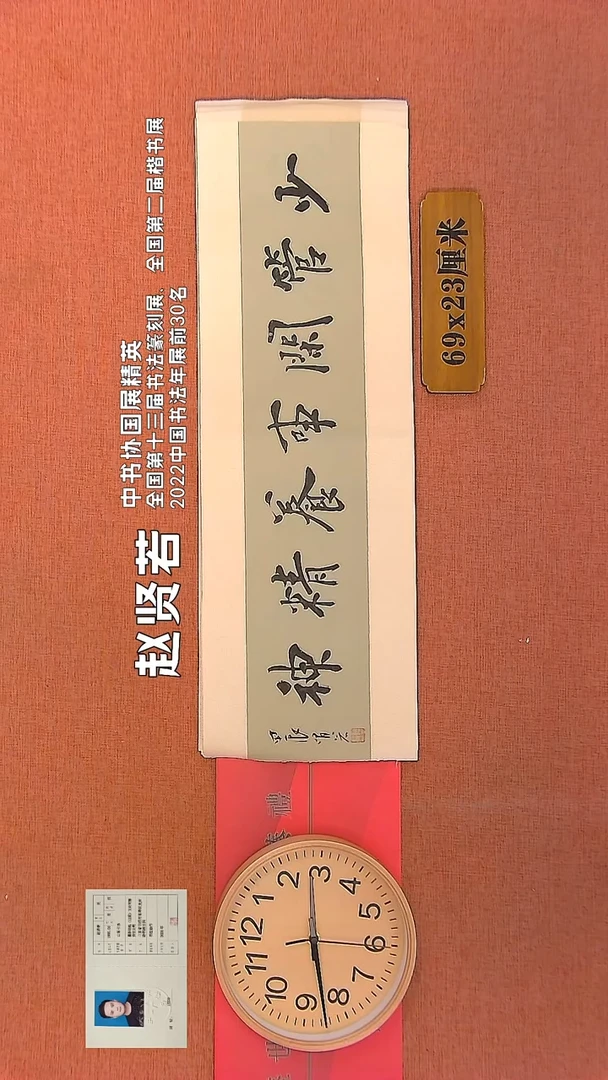 赵贤若
中书协国展精英
全国第十三届书法篆刻展、全国第二届楷书展
2022中国书法年展前30名
少管閑事養精神
69x23厘米
12
1
2
3
4
5
6
7
8
9
10
11